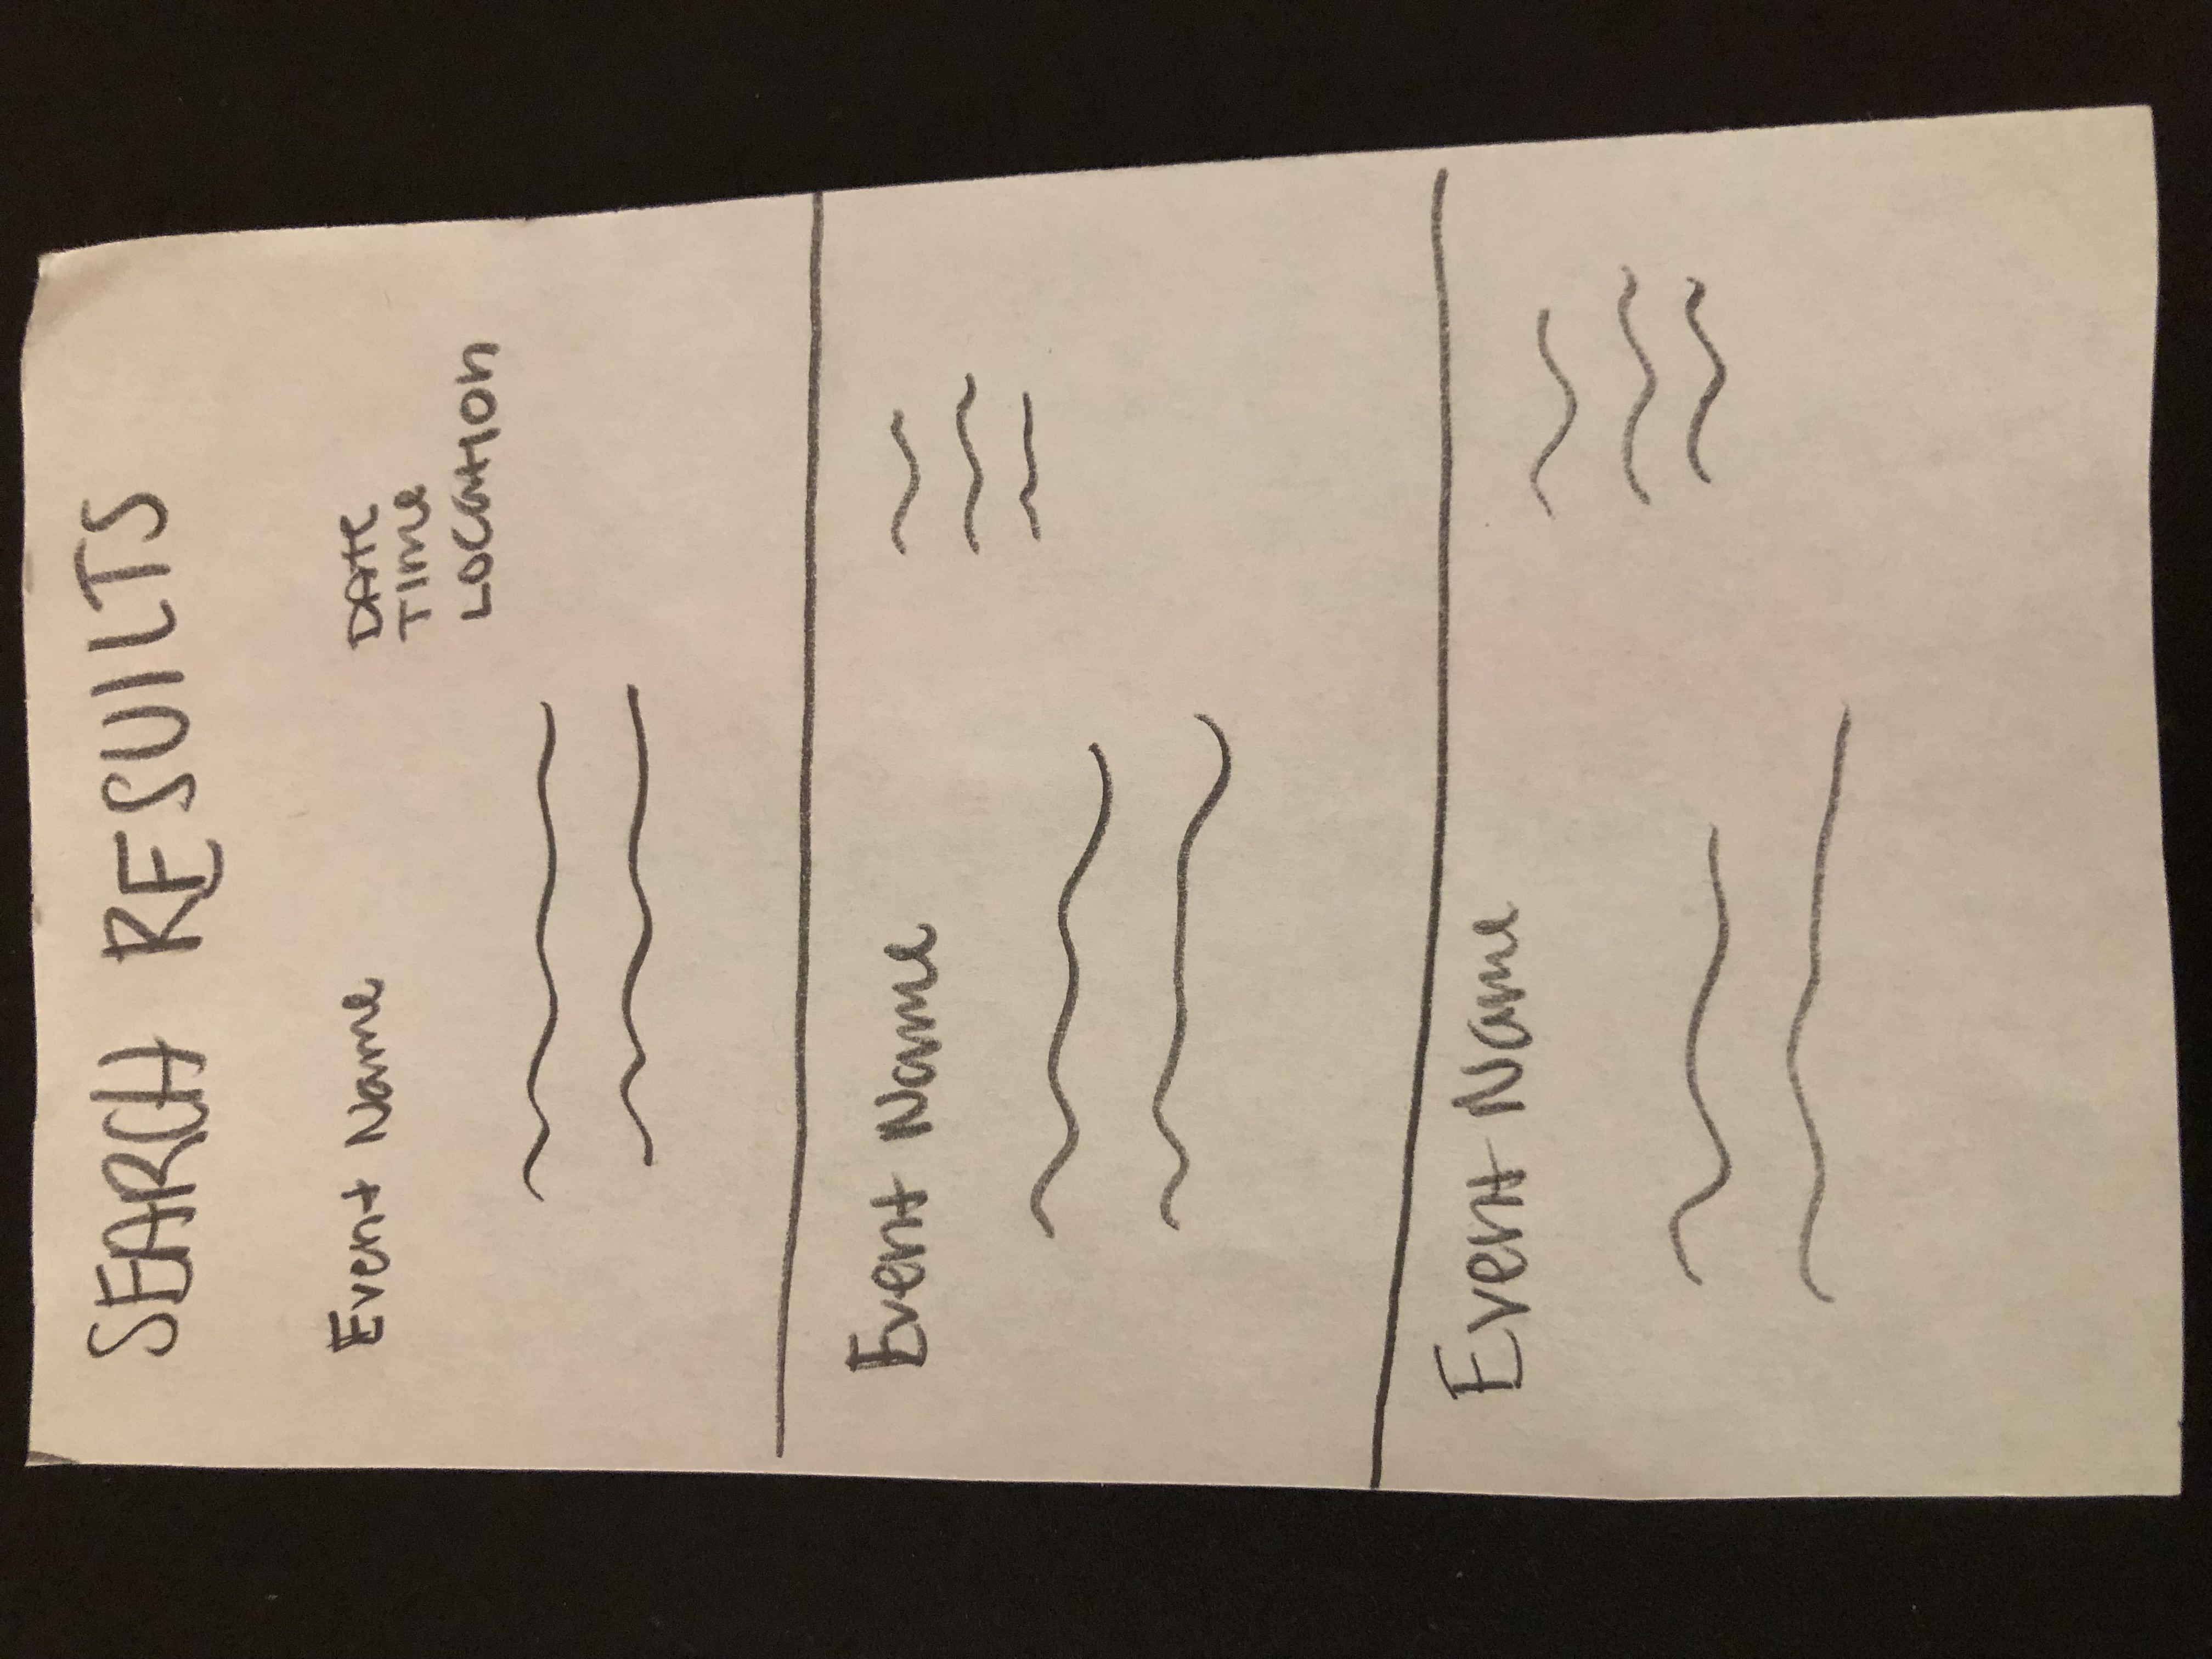 SEARCH RESUILTS
Event Name
DATE
TIME
LOCATION
Event Name
Event Name